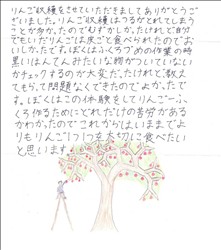 りんご収穫をさせていただきましてありがとうご
ざいました。りんご収穫はつるがとれてしまう
ことが多かったのでむずかしかったけれど自分
でもいだりんごは皮ごと食べられたのでお
いしかったです。ぼくはふくろづめの作業の時
黒いはんてんみたいな物がついていない
かチェックするのが大変だったけれど、教え
てもらって問題なくできたのでよかったで
す。ぼくはこの体験をしてりんご一ふ
くろ作るためにどれだけの苦労がある
かわかったのでこれからはいままでよ
りもりんご1つ1つを大切に食べたい
と思います。